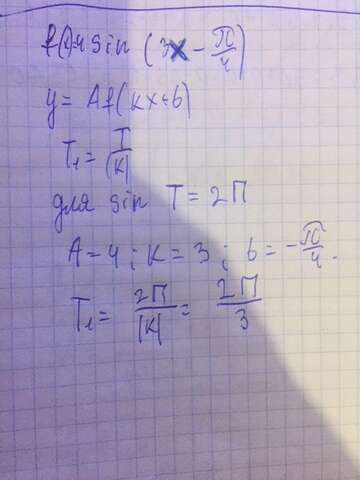 f(x)=4 sin (3x - π/4)
y = Af(kx+b)
T₁ = T/|k|
для sin T = 2π
A = 4; k = 3; b = -π/4.
T₁ = 2π/|k| = 2π/3